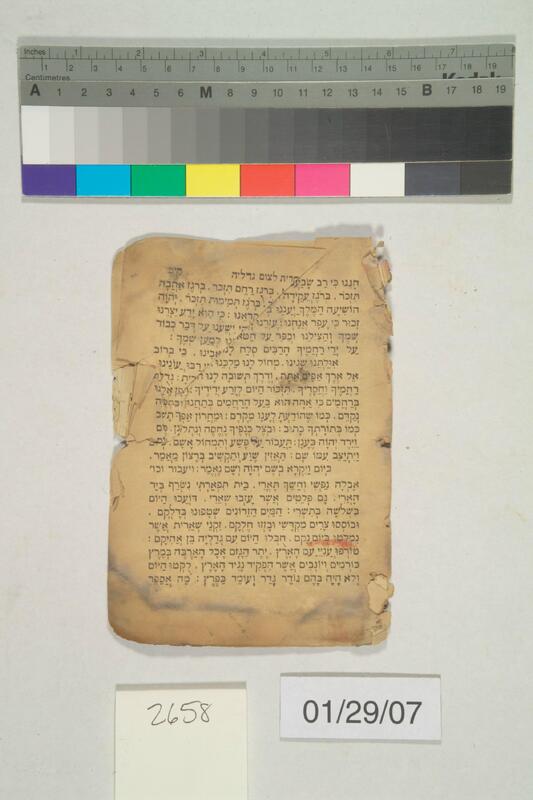 Inches 1 2 3 4 5 6 7 8
Centimetres 1 2 3 4 5 6 7 8 9 10 11 12 13 14 15 16 17 18 19
Kodak
A 1 2 3 4 5 6 M 8 9 10 11 12 13 14 15 B 17 18 19
לצום גדליה
חָנֵּנוּ כִּי רַב שָׂבַעְנוּ . בְּרֹגֶז רַחֵם תִּזְכֹּר . בְּרֹגֶז אַהֲבָה
תִּזְכֹּר . בְּרֹגֶז עֲקֵידָה בְּרֹגֶז תְּמִימוּת תִּזְכֹּר . יְהֹוָה
הוֹשִׁיעָה הַמֶּלֶךְ יַעֲנֵנוּ קָרְאֵנוּ : כִּי הוּא יָדַע יִצְרֵנוּ
זָכוּר כִּי עָפָר אֲנָחְנוּ : עָזְרֵנוּ יִשְׁעֵנוּ עַל דְּבַר כְּבוֹד
שְׁמֶךָ וְהַצִּילֵנוּ וְכַפֵּר עַל לְמַעַן שְׁמֶךָ :
עַל יְדֵי רַחֲמֶיךָ הָרַבִּים סְלַח לָנוּ אָבִינוּ . כִּי בְרוֹב
אִוַּלְתֵּנוּ שָׁגִינוּ . מְחוֹל לָנוּ מַלְכֵּנוּ רַבּוּ עֲוֹנֵינוּ
אֵל אֶרֶךְ אַפַּיִם אַתָּה . וְדֶרֶךְ תְּשׁוּבָה לָנוּ
רַחֲמֶיךָ וַחֲסָדֶיךָ . תִּזְכּוֹר הַיּוֹם לְזֶרַע יְדִידֶיךָ : תֵּפֶן אֵלֵינוּ
בְּרַחֲמִים כִּי אַתָּה הוּא בַּעַל הָרַחֲמִים בְּתַחֲנוּן וּבִתְפִלָּה
נְקַדֵּם . כְּמוֹ שֶׁהוֹדַעְתָּ לֶעָנָו מִקֶּדֶם : וּמֵחֲרוֹן אַפְּךָ תָּשֻׁב
כְּמוֹ בְּתוֹרָתְךָ כָּתוּב : וּבְצֵל כְּנָפֶיךָ נֶחֱסֶה וְנִתְלוֹנָן .
וַיֵּרֶד יְהֹוָה בֶּעָנָן : תַּעֲבוֹר עַל פֶּשַׁע וְתִמְחוֹל אָשָׁם .
וַיִּתְיַצֵּב עִמּוֹ שָׁם : תַּאֲזִין שַׁוְעָ וְתַקְשִׁיב בְּרָצוֹן מַאֲמָר .
כְּיוֹם וַיִּקְרָא בְשֵׁם יְהֹוָה וְשָׁם נֶאֱמַר : ויעבור וכו׳
אָבְלָה נַפְשִׁי וְחָשַׁךְ תָּאֳרִי . בֵּית תִּפְאַרְתִּי נִשְׂרַף בְּיַד
הָאֲרִי . גַּם פְּלֵטִים אֲשֶׁר עָזְבוּ שְׁאֵרִי . דּוֹעֲכוּ הַיּוֹם
בִּשְׁלֹשָׁה בְּתִשְׁרִי : הַמַּיִם הַזֵּדוֹנִים שְׁטָפוּנוּ בְּדָלְקָם .
וּבוֹסְסוּ צָרִים מִקְדָּשִׁי וּבָזְזוּ חֶלְקָם . זִקְנֵי שְׁאֵרִית אֲשֶׁר
נִמְלְטוּ בְּיוֹם נָקָם . חֻבְּלוּ הַיּוֹם עִם גְּדַלְיָה בֶּן אֲחִיקָם :
טוֹרְפוּ עֲנִיֵּי עַם הָאָרֶץ . יֶתֶר הַגָּזָם אָכַל הָאַרְבֶּה בְּמֶרֶץ
כּוֹרְמִים וְיוֹגְבִים אֲשֶׁר הִפְקִיד נְגִיד הָאָרֶץ . לֻקְּטוּ הַיּוֹם
וְלֹא הָיָה בָהֶם גּוֹדֵר גָּדֵר וְעוֹמֵד בַּפֶּרֶץ : מָה אֲצַפְצֵף
2658
01/29/07